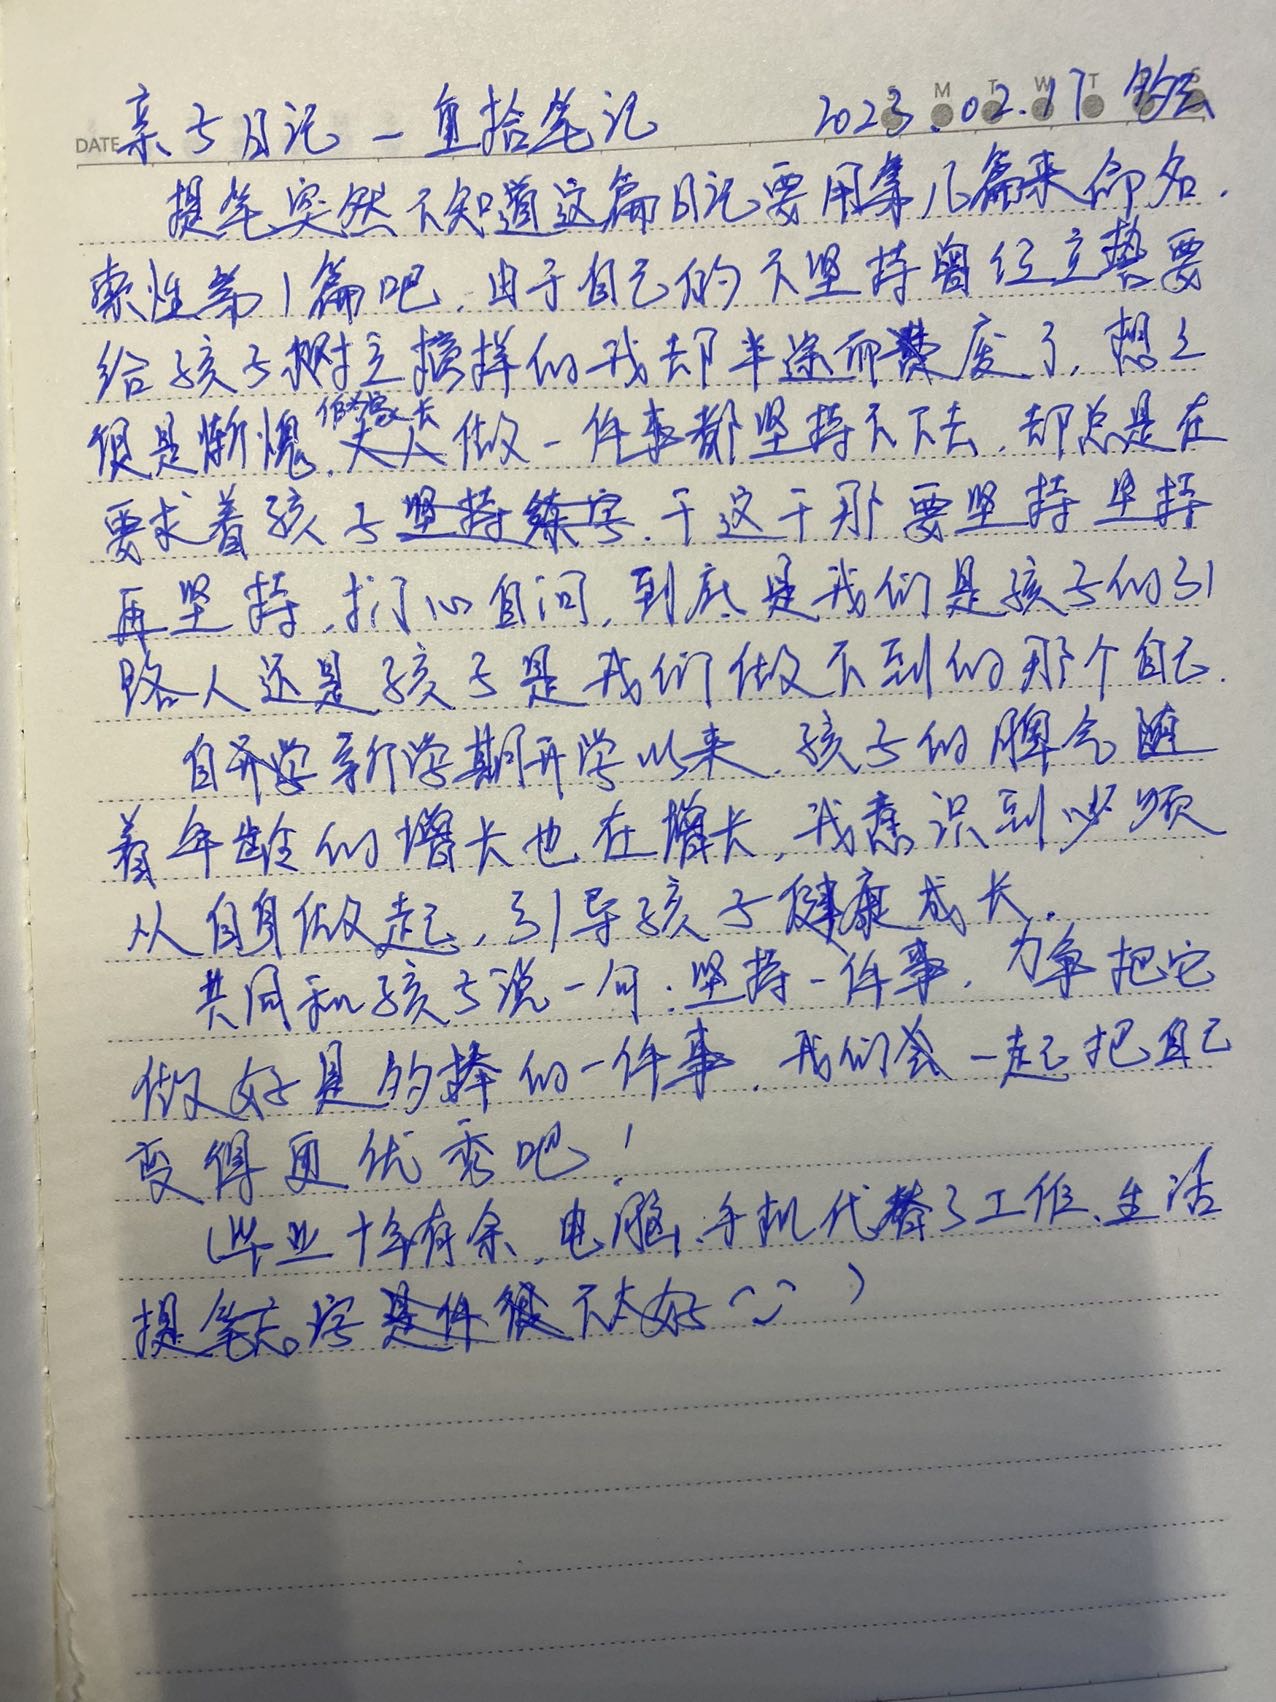 DATE 亲子日记一重拾笔记 2023.02.17
M T W T S
提笔突然不知道这篇日记要用第几篇来命名.
索性第1篇吧.由于自己的不坚持曾经立势要
给孩子树立榜样的我却半途而废了,想之
做家长
很是惭愧.大人做一件事都坚持不下去,却总是在
要求着孩子坚持练字.干这干那要坚持坚持
再坚持,扪心自问,到底是我们是孩子的引
路人还是孩子是我们做不到的那个自己.
自开学新学期开学以来.孩子的脾气随
着年龄的增长也在增长,我意识到必须
从自身做起,引导孩子健康成长.
共同和孩子说一句:坚持一件事,力争把它
做好是的棒的一件事.我们会一起把自己
变得更优秀吧!
(毕业十年有余.电脑、手机代替了工作、生活
提笔忘字是件很不太好 )